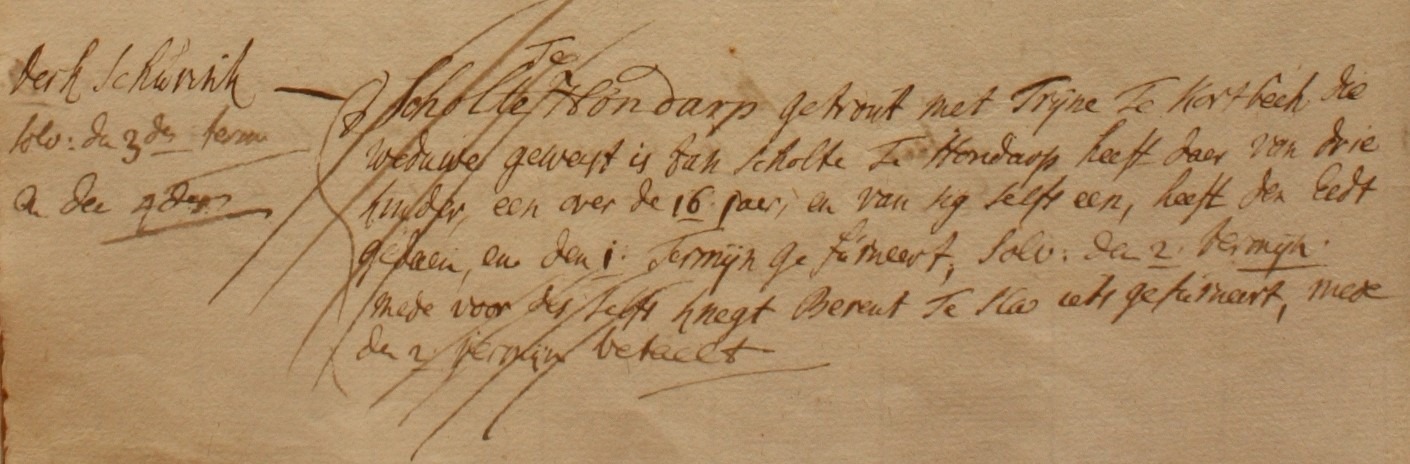 Derk Schurink
solv: den 3den term
en den 4den
Scholte Te Hondarp getrout met Trijne Te Kortbeeck die
weduwe geweest is van Scholte Te Hondarp heeft daer van drie
kinder, een over de 16 jaer, en van sig selfs een, heeft den Eedt
gedaen, en den 1. Termijn gefurneert, solv: den 2. termijn.
mede voor des selfs knegt Berent Te gefurneert, mede
den 2 termijn betaelt